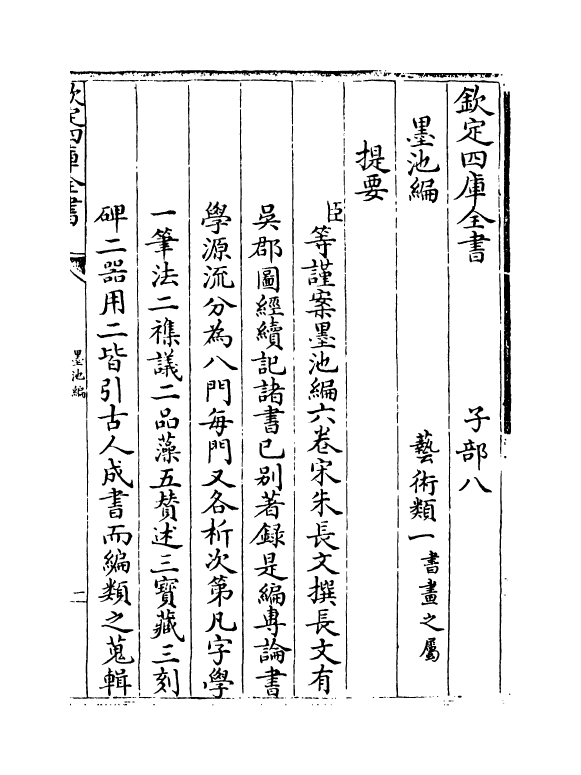 欽定四庫全書　子部八
墨池編　藝術類一書畫之屬
提要
臣等謹案墨池編六卷宋朱長文撰長文有
吳郡圖經續記諸書已別著録是編専論書
學源流分為八門每門又各析次第凡字學
一筆法二襍議二品藻五賛述三寳藏三刻
碑二器用二皆引古人成書而編類之蒐輯
欽定四庫全書　墨池編　二